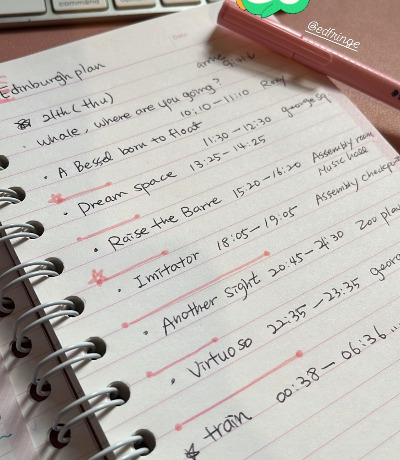 command
Date
@edfringe
Edinburgh plan
24th (thu)
· Whale, where are you going?
10:10 – 11:10
· A Bessel born to float 11:30 – 12:30 george sq
· Dream space 13:25 – 14:25
· Raise the Barre 15:20 – 16:20 Assembly room Music hall
· Imitator 18:05 – 19:05 Assembly checkpoin
· Another sight 20:45 – 21:30 Zoo play
· Virtuoso 22:35 – 23:35 georg
train 00:38 – 06:36